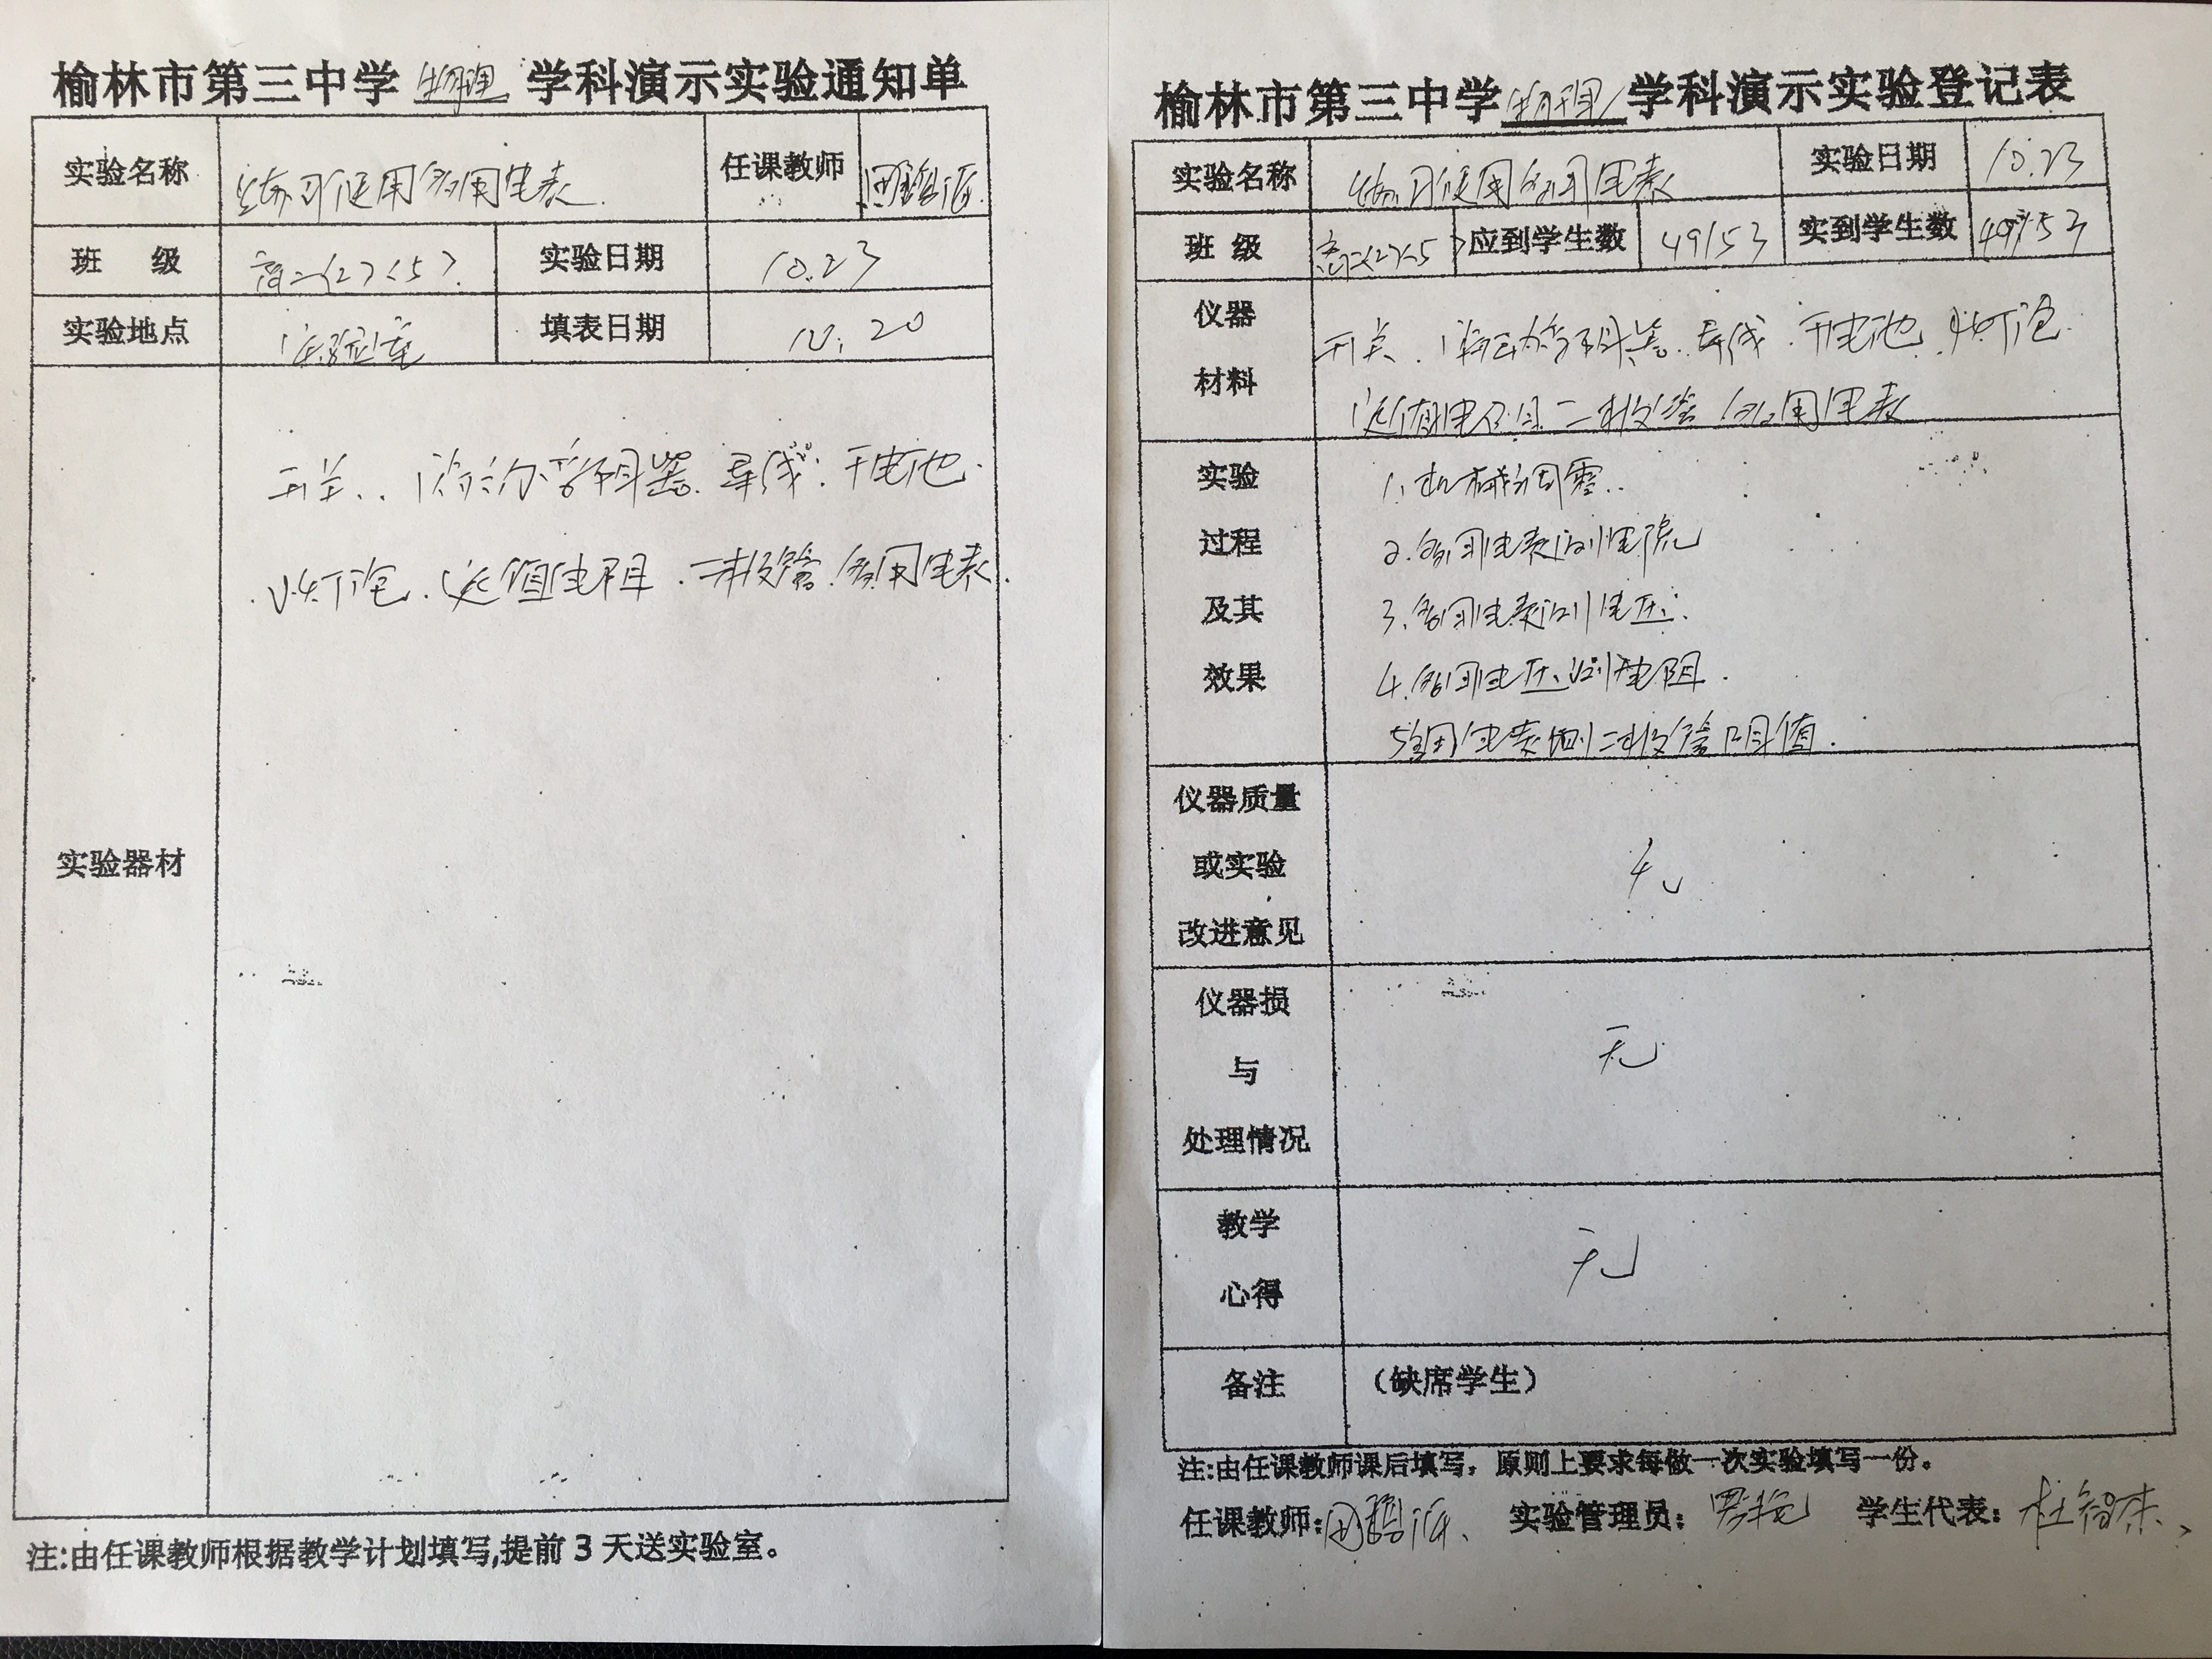 榆林市第三中学 物理 学科演示实验通知单
实验名称 练习使用多用电表. 任课教师
班 级 高二(2)(5). 实验日期 10.23
实验地点 实验室 填表日期 10.20
实验器材
开关. 滑动变阻器. 导线. 干电池.
小灯泡. 定值电阻. 二极管. 多用电表.
注:由任课教师根据教学计划填写,提前3天送实验室。
榆林市第三中学 物理 学科演示实验登记表
实验名称 练习使用多用电表 实验日期 10.23
班 级 高二(2)(5) 应到学生数 49/53 实到学生数 49/53
仪器 材料
开关. 滑动变阻器. 导线. 干电池. 小灯泡.
定值电阻 二极管 多用电表
实验 过程 及其 效果
1. 机械调零.
2. 多用电表测电流
3. 多用电表测电压.
4. 多用电压测电阻.
5多用电表测二极管阻值.
仪器质量 或实验 改进意见 无
仪器损 与 处理情况 无
教学 心得 无
备注 (缺席学生)
注:由任课教师课后填写,原则上要求每做一次实验填写一份。
任课教师: 实验管理员: 学生代表: 杜智杰